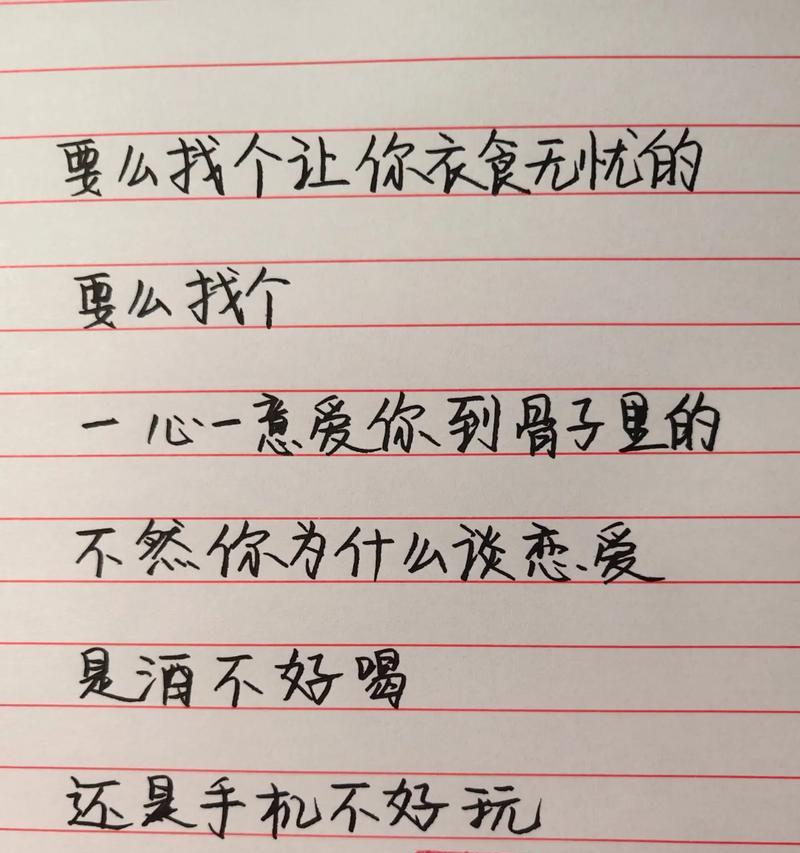 要么找个让你衣食无忧的
要么找个
一心一意爱你到骨子里的
不然你为什么谈恋爱
是酒不好喝
还是手机不好玩